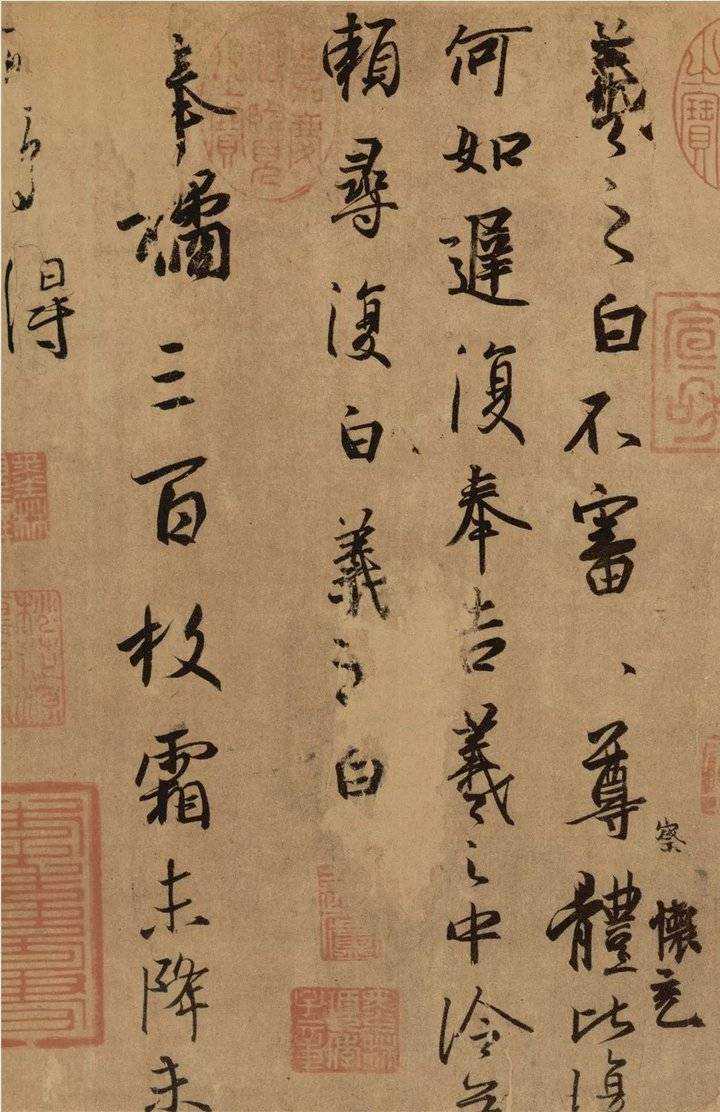 宣和
察
懷充
羲之白不審、尊體比復
何如遲復奉告羲之中冷
賴尋復白羲之白
嘉慶御覽之寶
奉橘三百枚霜未降未
得